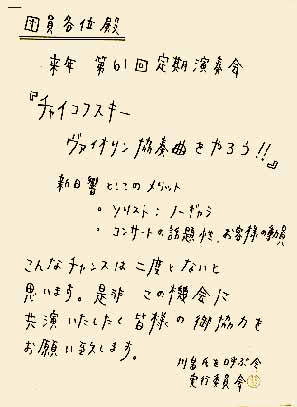 団員各位殿
来年 第61回定期演奏会
『チャイコフスキー
ヴァイオリン協奏曲をやろう!!』
新日響としてのメリット
• ソリスト:ノーギャラ
• コンサートの話題性、お客様の動員
こんなチャンスは二度とないと
思います。是非 この機会に
共演いたしたく皆様の御協力を
お願い致します。
川畠氏を呼ぶ会
実行委員会